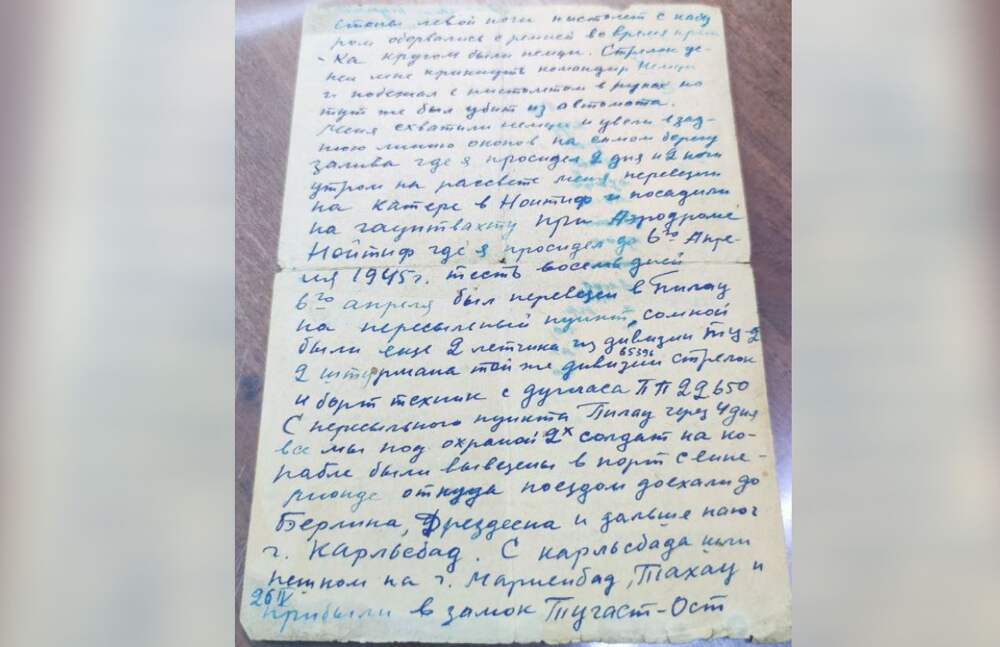 стопы левой ноги пистолет с кабу
ром оборвались с ремней во время прыж
ка кругом были немцы. Стрелок де
мне крикнуть командир Немцы
и побежал с пистолетом в руках но
тут же был убит из автомата.
Меня схватили немцы и увели в зад-
нюю линию окопов на самом берегу
залива где я просидел 2 дня и 2 ночи
утром на рассвете меня перевезли
на катере в Нойтиф и посадили
на гауптвахту при Аэродроме
Нойтиф где я просидел до 6го Апре-
ля 1945г. шесть восемь дней
6го апреля был перевезен в Пилау
на пересыльный пункт, сомной
были еще 2 летчика из дивизии ТУ-2
2 штурмана той же дивизии стрелок
и борт техник с дугласа ПП 22650
С пересыльного пункта Пилау через 4 дня
все мы под охраной 2х солдат на ко-
рабле были вывезены в порт Свине-
мюнде откуда поездом доехали до
Бэрлина, Дрездена и дальше на юг
г. Карльсбад. С карльсбада шли
пешком на г. Мариенбад, Тахау и
26 IV
прибыли в замок Тугаст-Ост